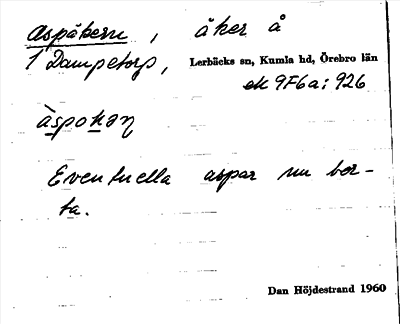 Aspåkern, åker å
1 Dampetorp, Lerbäcks sn, Kumla hd, Örebro län
ek 9F6a: 926
àspokəṇ
Eventuella aspar nu bor-
ta.
Dan Höjdestrand 1960